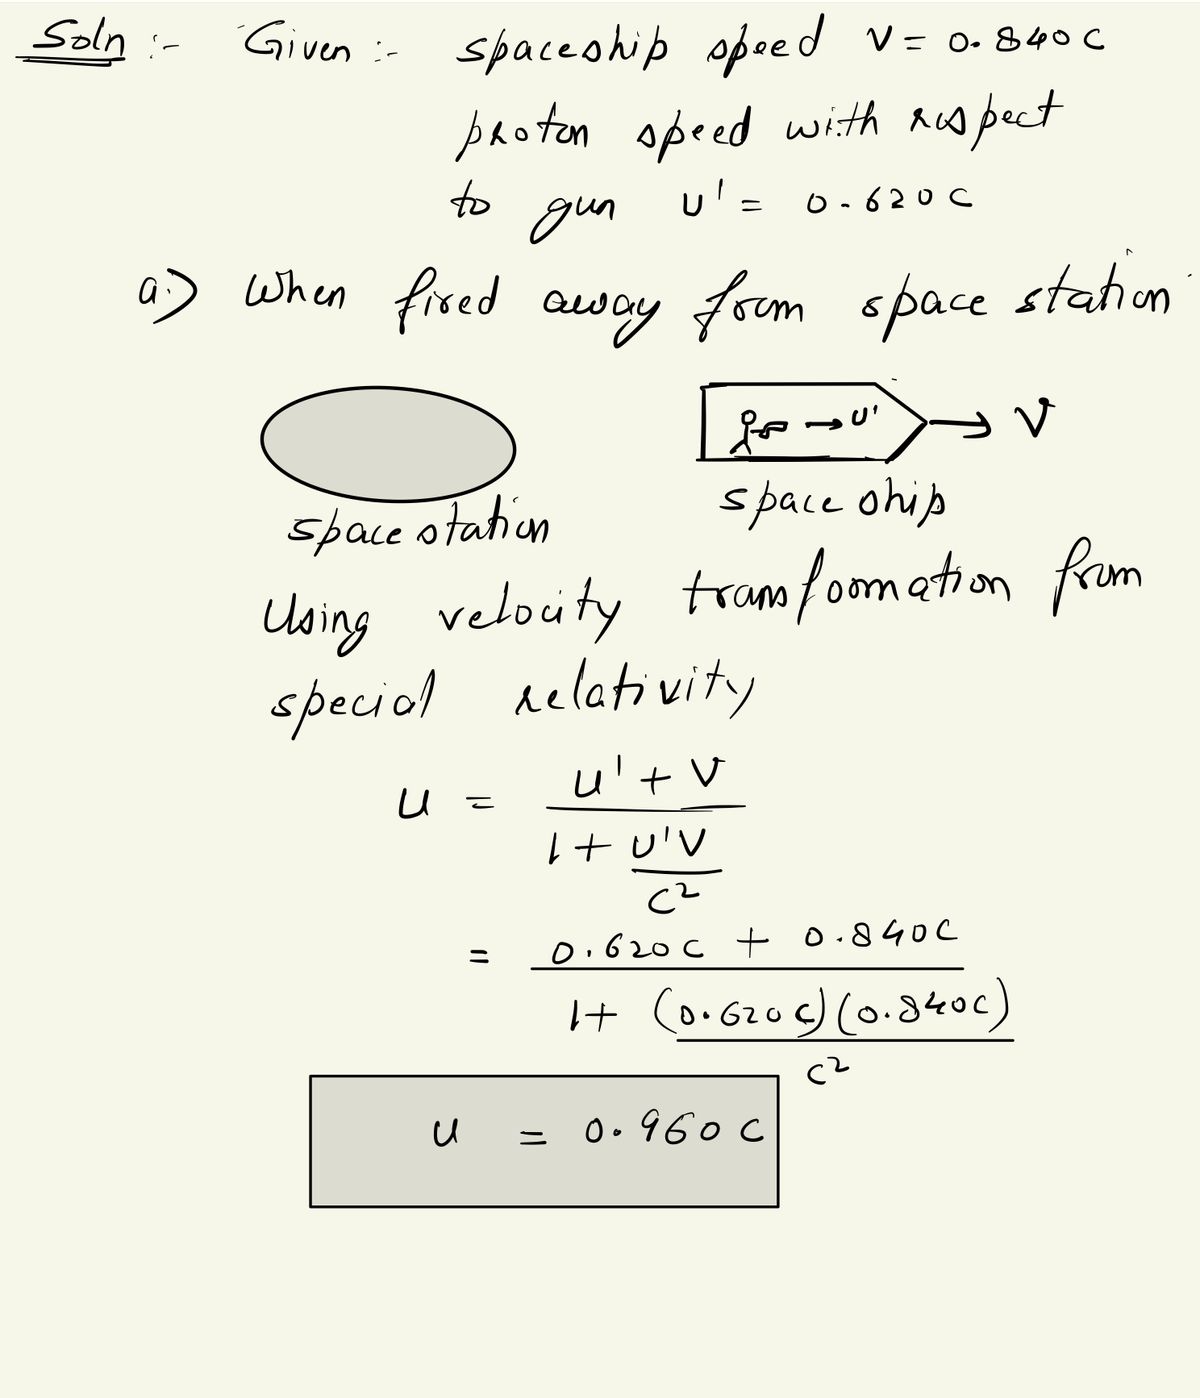 Soln :- Given :- spaceship speed v = 0.840 c
proton speed with respect
to gun u' = 0.620 c
a.) When fired away from space station
→ u' → v
space station space ship
Using velocity transformation from
special relativity
u = u' + v
1 + u'v
c²
= 0.620 c + 0.840 c
1 + (0.620 c) (0.840 c)
c²
u = 0.960 c